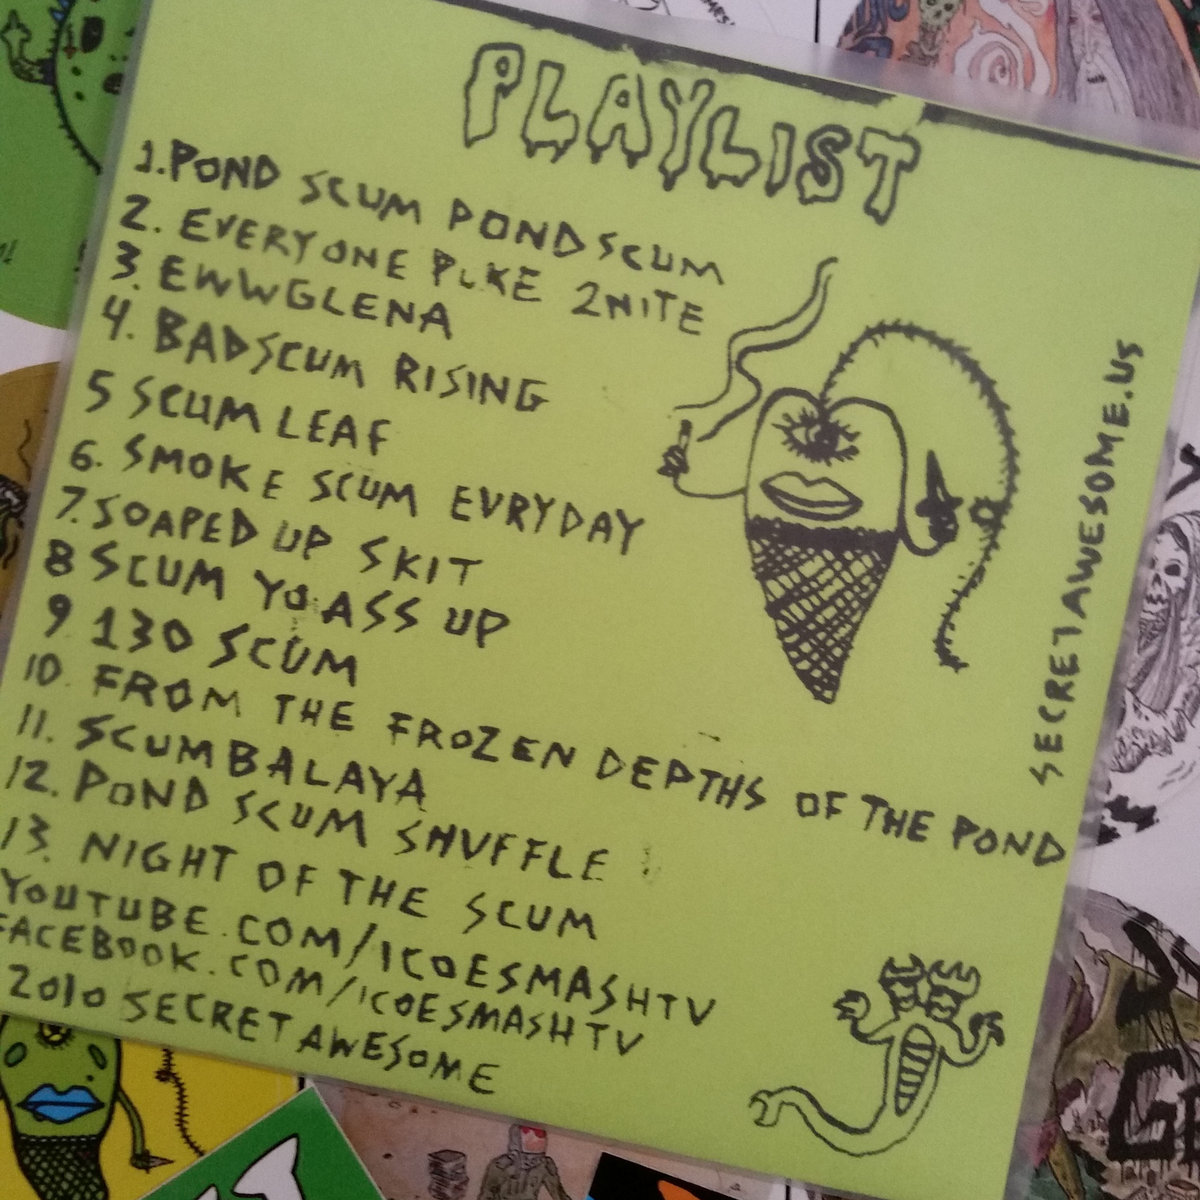 PLAYLIST
1. POND SCUM POND SCUM
2. EVERYONE PUKE 2NITE
3. EWWGLENA
4. BADSCUM RISING
5 SCUM LEAF
6. SMOKE SCUM EVRYDAY
7. SOAPED UP SKIT
8 SCUM YO ASS UP
9 130 SCUM
10. FROM THE FROZEN DEPTHS OF THE POND
11. SCUMBALAYA
12. POND SCUM SHUFFLE
13. NIGHT OF THE SCUM
YOUTUBE.COM/ICOESMASHTV
FACEBOOK.COM/ICOESMASHTV
2010 SECRET AWESOME
SECRETAWESOME.US